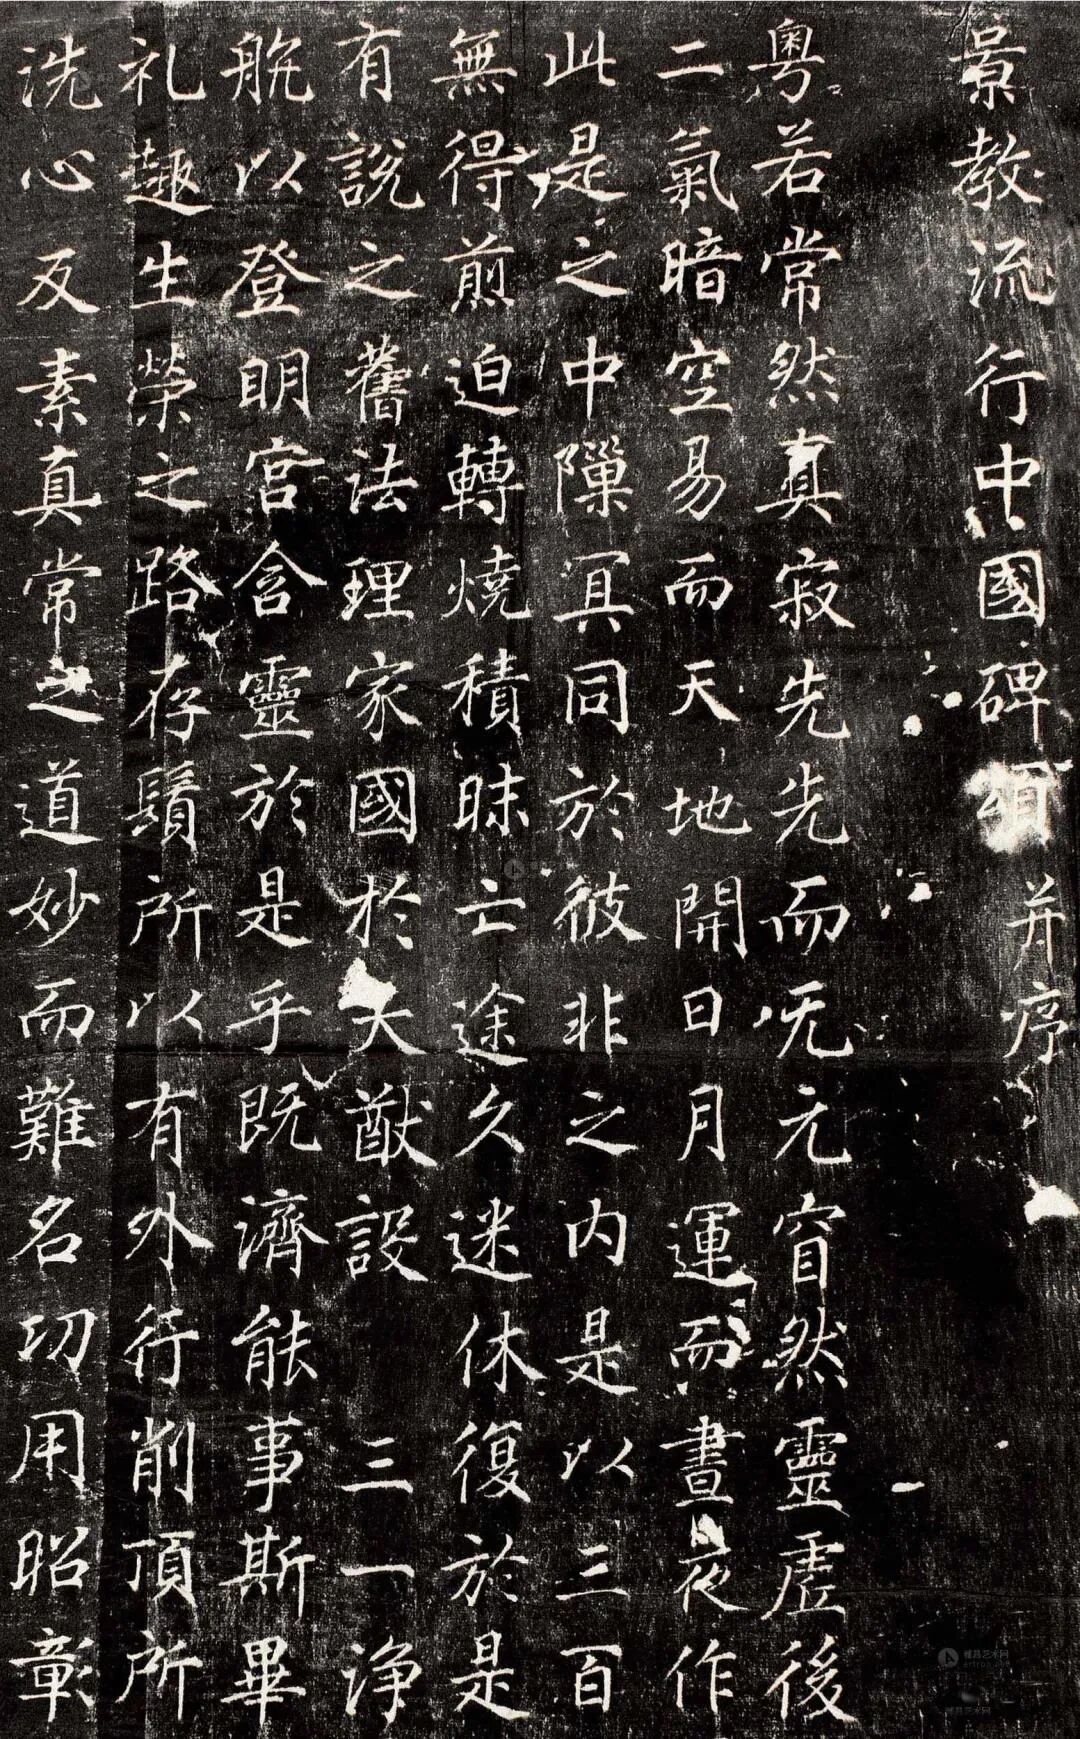 景教流行中國碑頌并序
粵若常然真寂先先而无元窅然靈虛後
二氣暗空易而天地開日月運而晝夜作
此是之中隟冥同於彼非之內是以三百
無得煎迫轉燒積昧亡途久迷休復於是
有說之舊法理家國於大猷設 三一淨
航以登明宮含靈於是乎既濟能事斯畢
礼趣生榮之路存鬚所以有外行削頂所
洗心反素真常之道妙而難名功用昭彰
雅昌艺术网